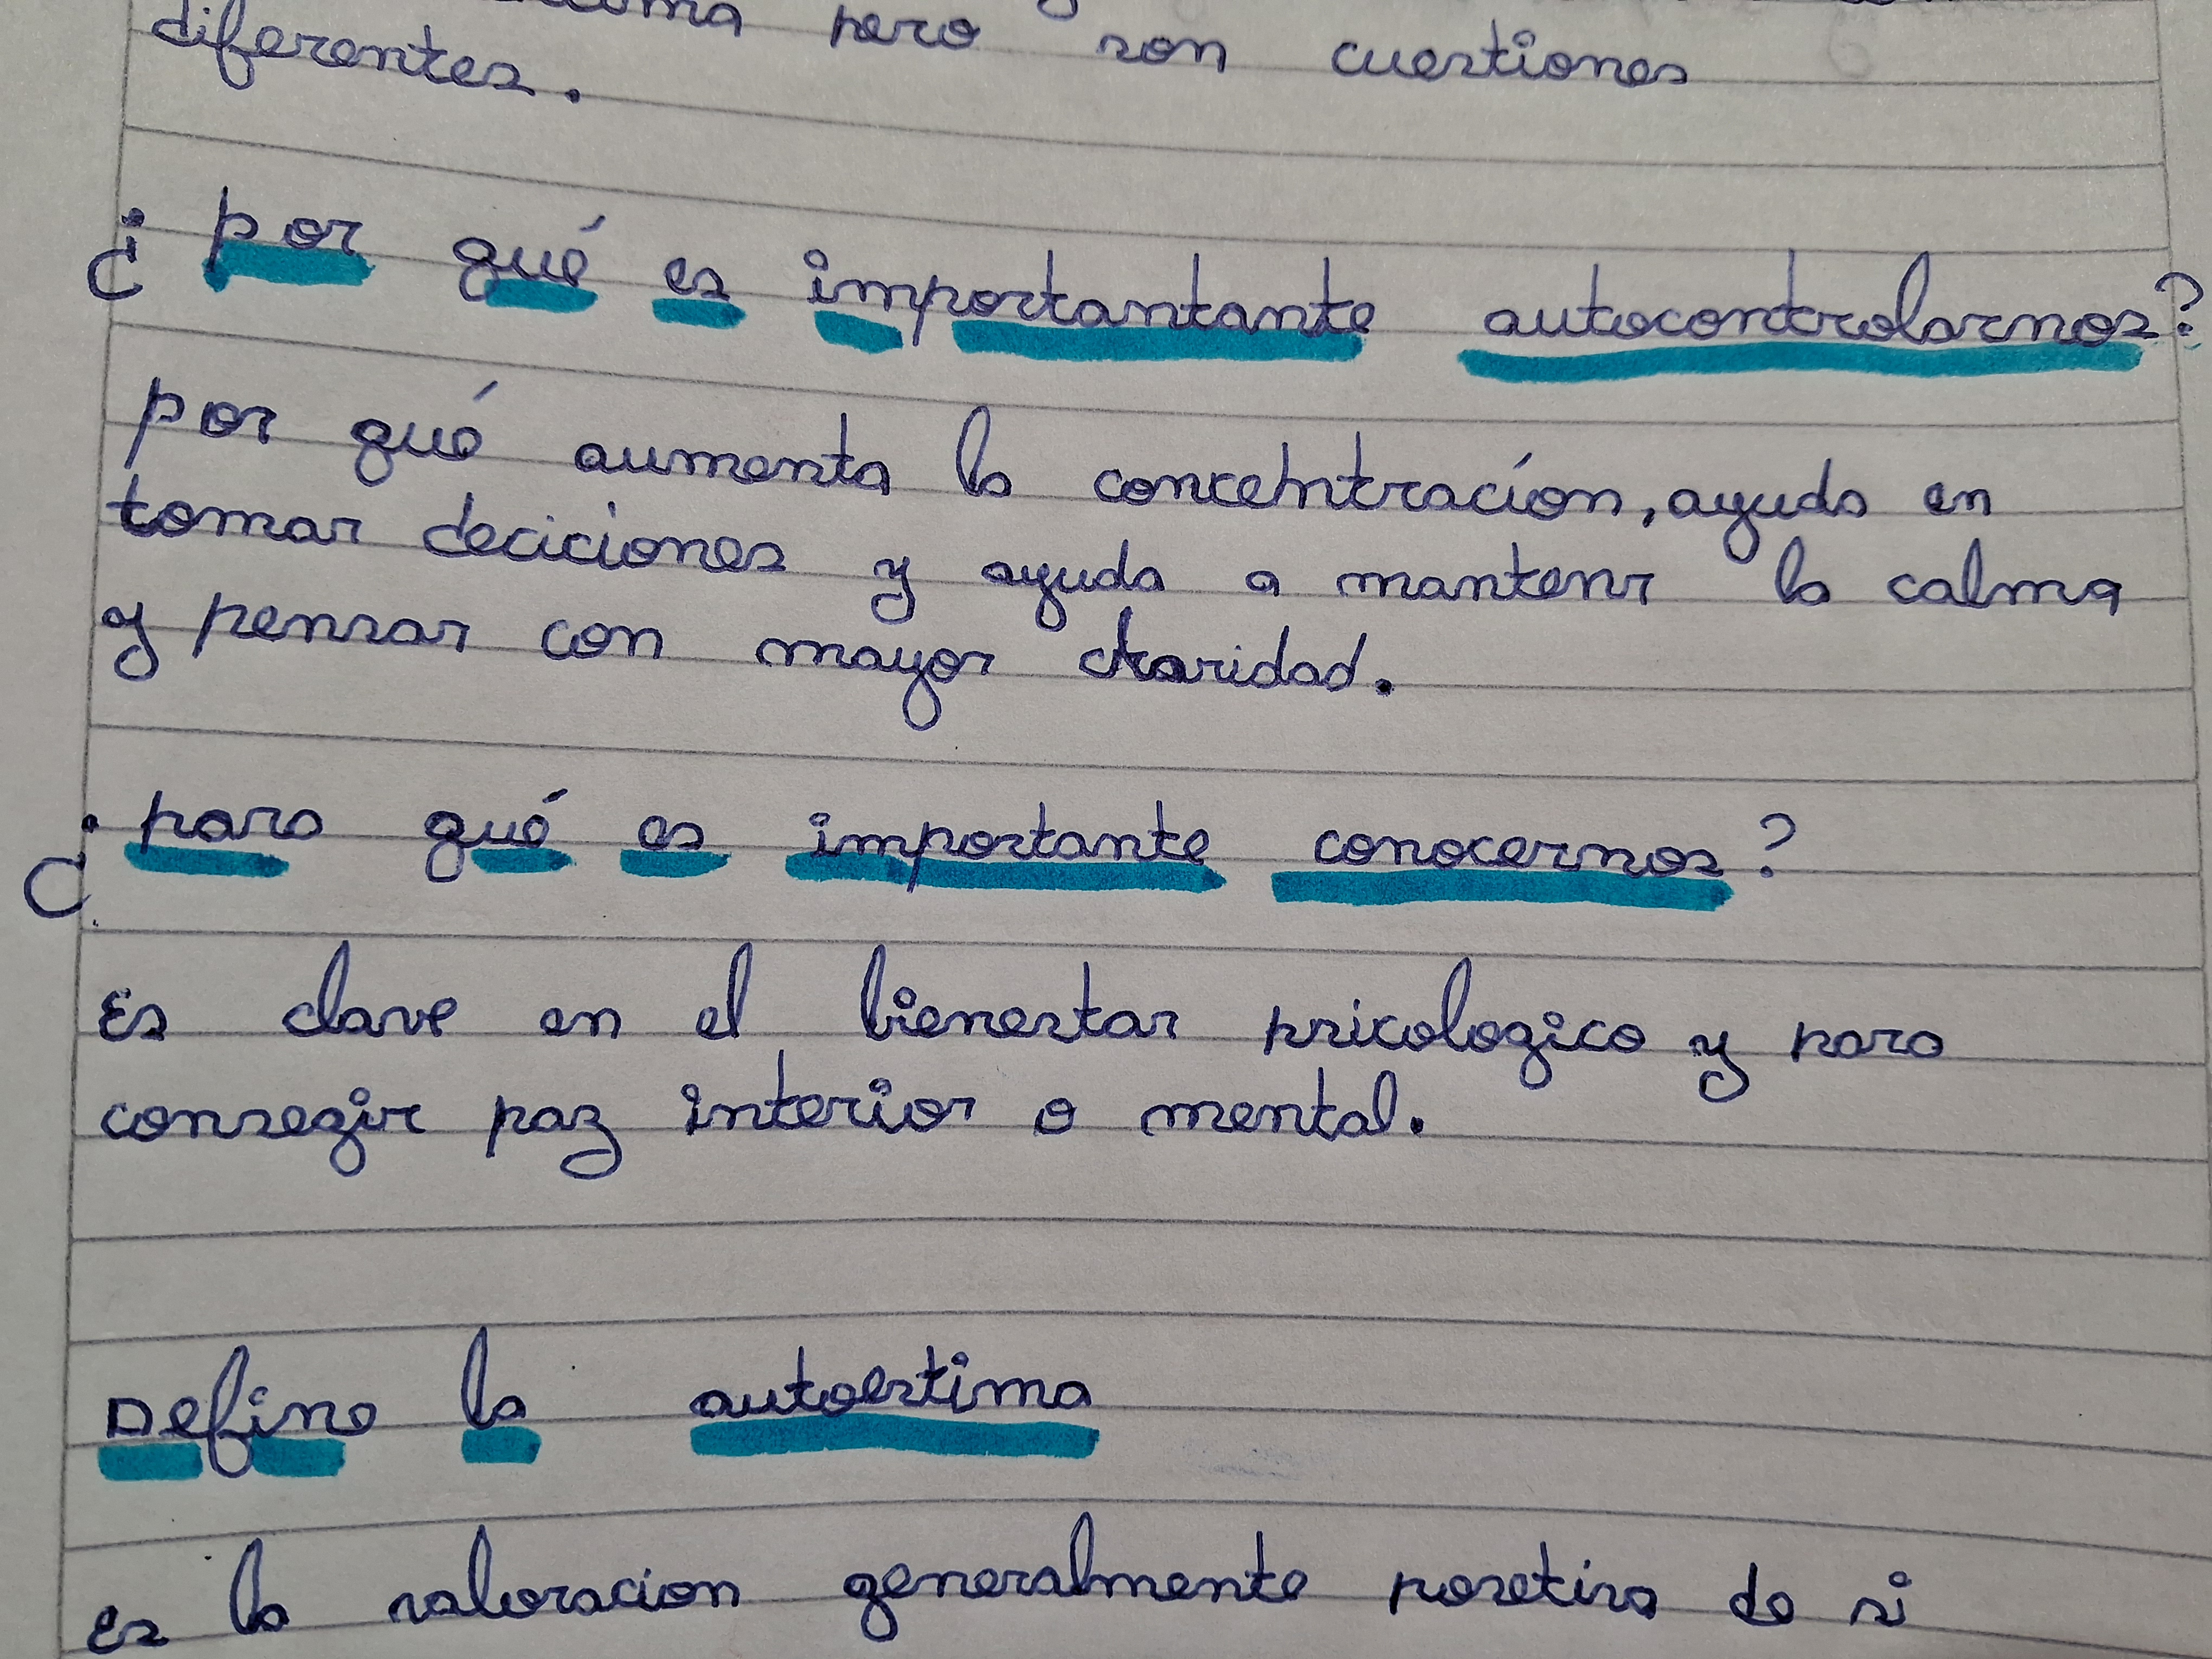 pero son cuestiones
diferentes.
¿por qué es importantante autocontrolarnos?
por qué aumenta la concentración, ayuda en
tomar deciciones y ayuda a mantenr la calma
y pensar con mayor claridad.
¿para qué es importante conocernos?
Es clave en el bienestar psicologico y para
consegir paz interior o mental.
Define la autoestima
es la valoracion generalmente posetiva de si